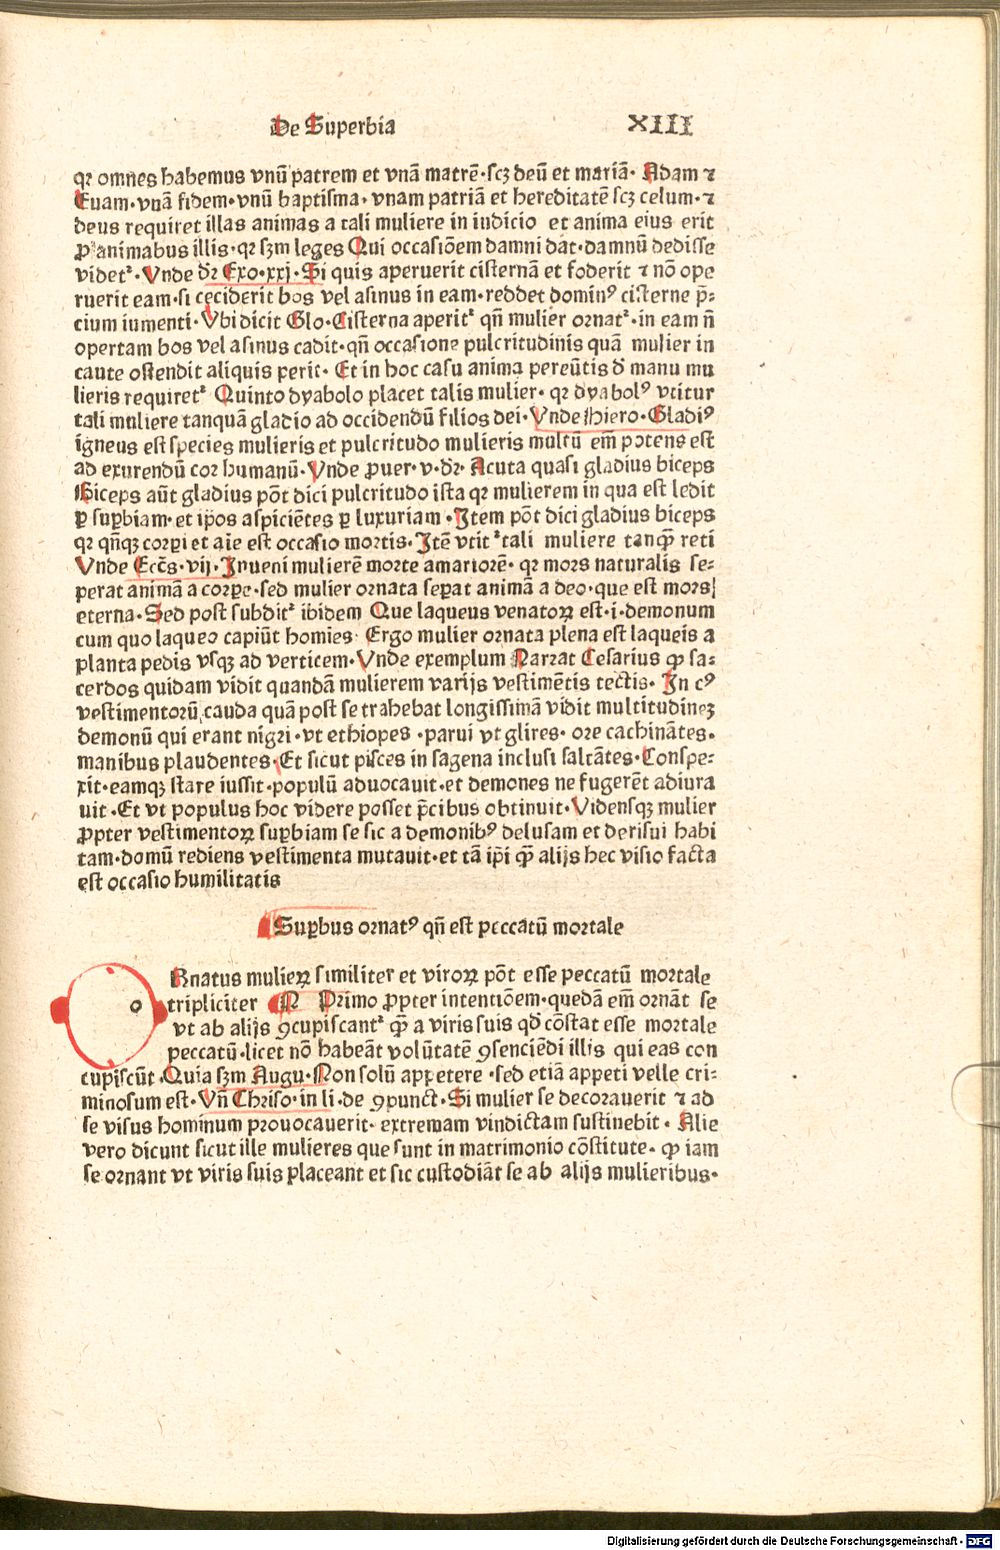 De Superbia XIII
qꝛ omnes habemus vnū patrem et vnā matrē·scꝫ deū et mariā· Adam ⁊
Euam·vnā fidem·vnū baptisma·vnam patriā et hereditatē scꝫ celum·⁊
deus requiret illas animas a tali muliere in iudicio et anima eius erit
ꝓ animabus illis·qꝛ sꝫm leges Qui occasiōem damni dat·damnū dedisse
videt᷑·Vnde dꝛ Exo·xxj·Si quis aperuerit cisternā et foderit ⁊ nō ope
ruerit eam·si ceciderit bos vel asinus in eam·reddet dominꝰ cisterne p̄:
cium iumenti·Vbi dicit Glo·Cisterna aperit᷑ qñ mulier ornat᷑·in eam ñ
opertam bos vel asinus cadit·qñ occasione pulcritudinis quā mulier in
caute ostendit aliquis perit· Et in hoc casu anima pereūtis d̄ manu mu
lieris requiret᷑ Quinto dyabolo placet talis mulier·qꝛ dyabolꝰ vtitur
tali muliere tanquā gladio ad occidendū filios dei·Vnde Hiero·Gladiꝰ
igneus est species mulieris et pulcritudo mulieris multū em̄ potens est
ad exurendū cor humanū·Vnde ꝓuer·v·dꝛ· Acuta quasi gladius biceps
Biceps aūt gladius pōt dici pulcritudo ista qꝛ mulierem in qua est ledit
ꝑ suꝑbiam·et ip̄os aspiciētes ꝑ luxuriam·Item pōt dici gladius biceps
qꝛ qñqꝫ corpi et aīe est occasio mortis·Itē vtit᷑ tali muliere tanqꝫ̄ reti
Vnde Eccēs·vij·Inueni mulierē morte amariorē·qꝛ mors naturalis se:
perat animā a corpe·sed mulier ornata seꝑat animā a deo·que est mors
eterna·Sed post subdit᷑ ibidem Que laqueus venatoꝝ est·i·demonum
cum quo laqueo capiūt homīes· Ergo mulier ornata plena est laqueis a
planta pedis vsqꝫ ad verticem·Vnde exemplum Narrat Cesarius ꝙ sa:
cerdos quidam vidit quandā mulierem varijs vestimētis tectis· In cꝰ
vestimentorū cauda quā post se trahebat longissimā vidit multitudinēꝫ
demonū qui erant nigri·vt ethiopes·parui vt glires·ore cachinātes·
manibus plaudentes·Et sicut pisces in sagena inclusi saltātes·Conspe:
xit·eamqꝫ stare iussit·populū aduocauit·et demones ne fugerēt adiura
uit·Et vt populus hoc videre posset p̄cibus obtinuit·Vidensqꝫ mulier
ꝓpter vestimentoꝝ suꝑbiam se sic a demonibꝰ delusam et derisui habi
tam·domū rediens vestimenta mutauit·et tā ip̄i qꝫ̄ alijs hec visio facta
est occasio humilitatis
Suꝑbus ornatꝰ qñ est peccatū mortale
o
Rnatus mulieꝝ similiter et viroꝝ pōt esse peccatū mortale
tripliciter Primo ꝓpter intentiōem·quedā em̄ ornāt se
vt ab alijs ꝯcupiscant᷑ qꝫ̄ a viris suis qd̄ cōstat esse mortale
peccatū·licet nō habeāt volūtatē ꝯsenciēdi illis qui eas con
cupiscūt·Quia sꝫm Augu·Non solū appetere·sed etiā appeti velle cri:
minosum est·Vñ Chriso·in li·de ꝯpunct·Si mulier se decorauerit ⁊ ad
se visus hominum prouocauerit·extremam vindictam sustinebit· Alie
vero dicunt sicut ille mulieres que sunt in matrimonio cōstitute·ꝙ iam
se ornant vt viris suis placeant et sic custodiāt se ab alijs mulieribus·
Digitalisierung gefördert durch die Deutsche Forschungsgemeinschaft · DFG